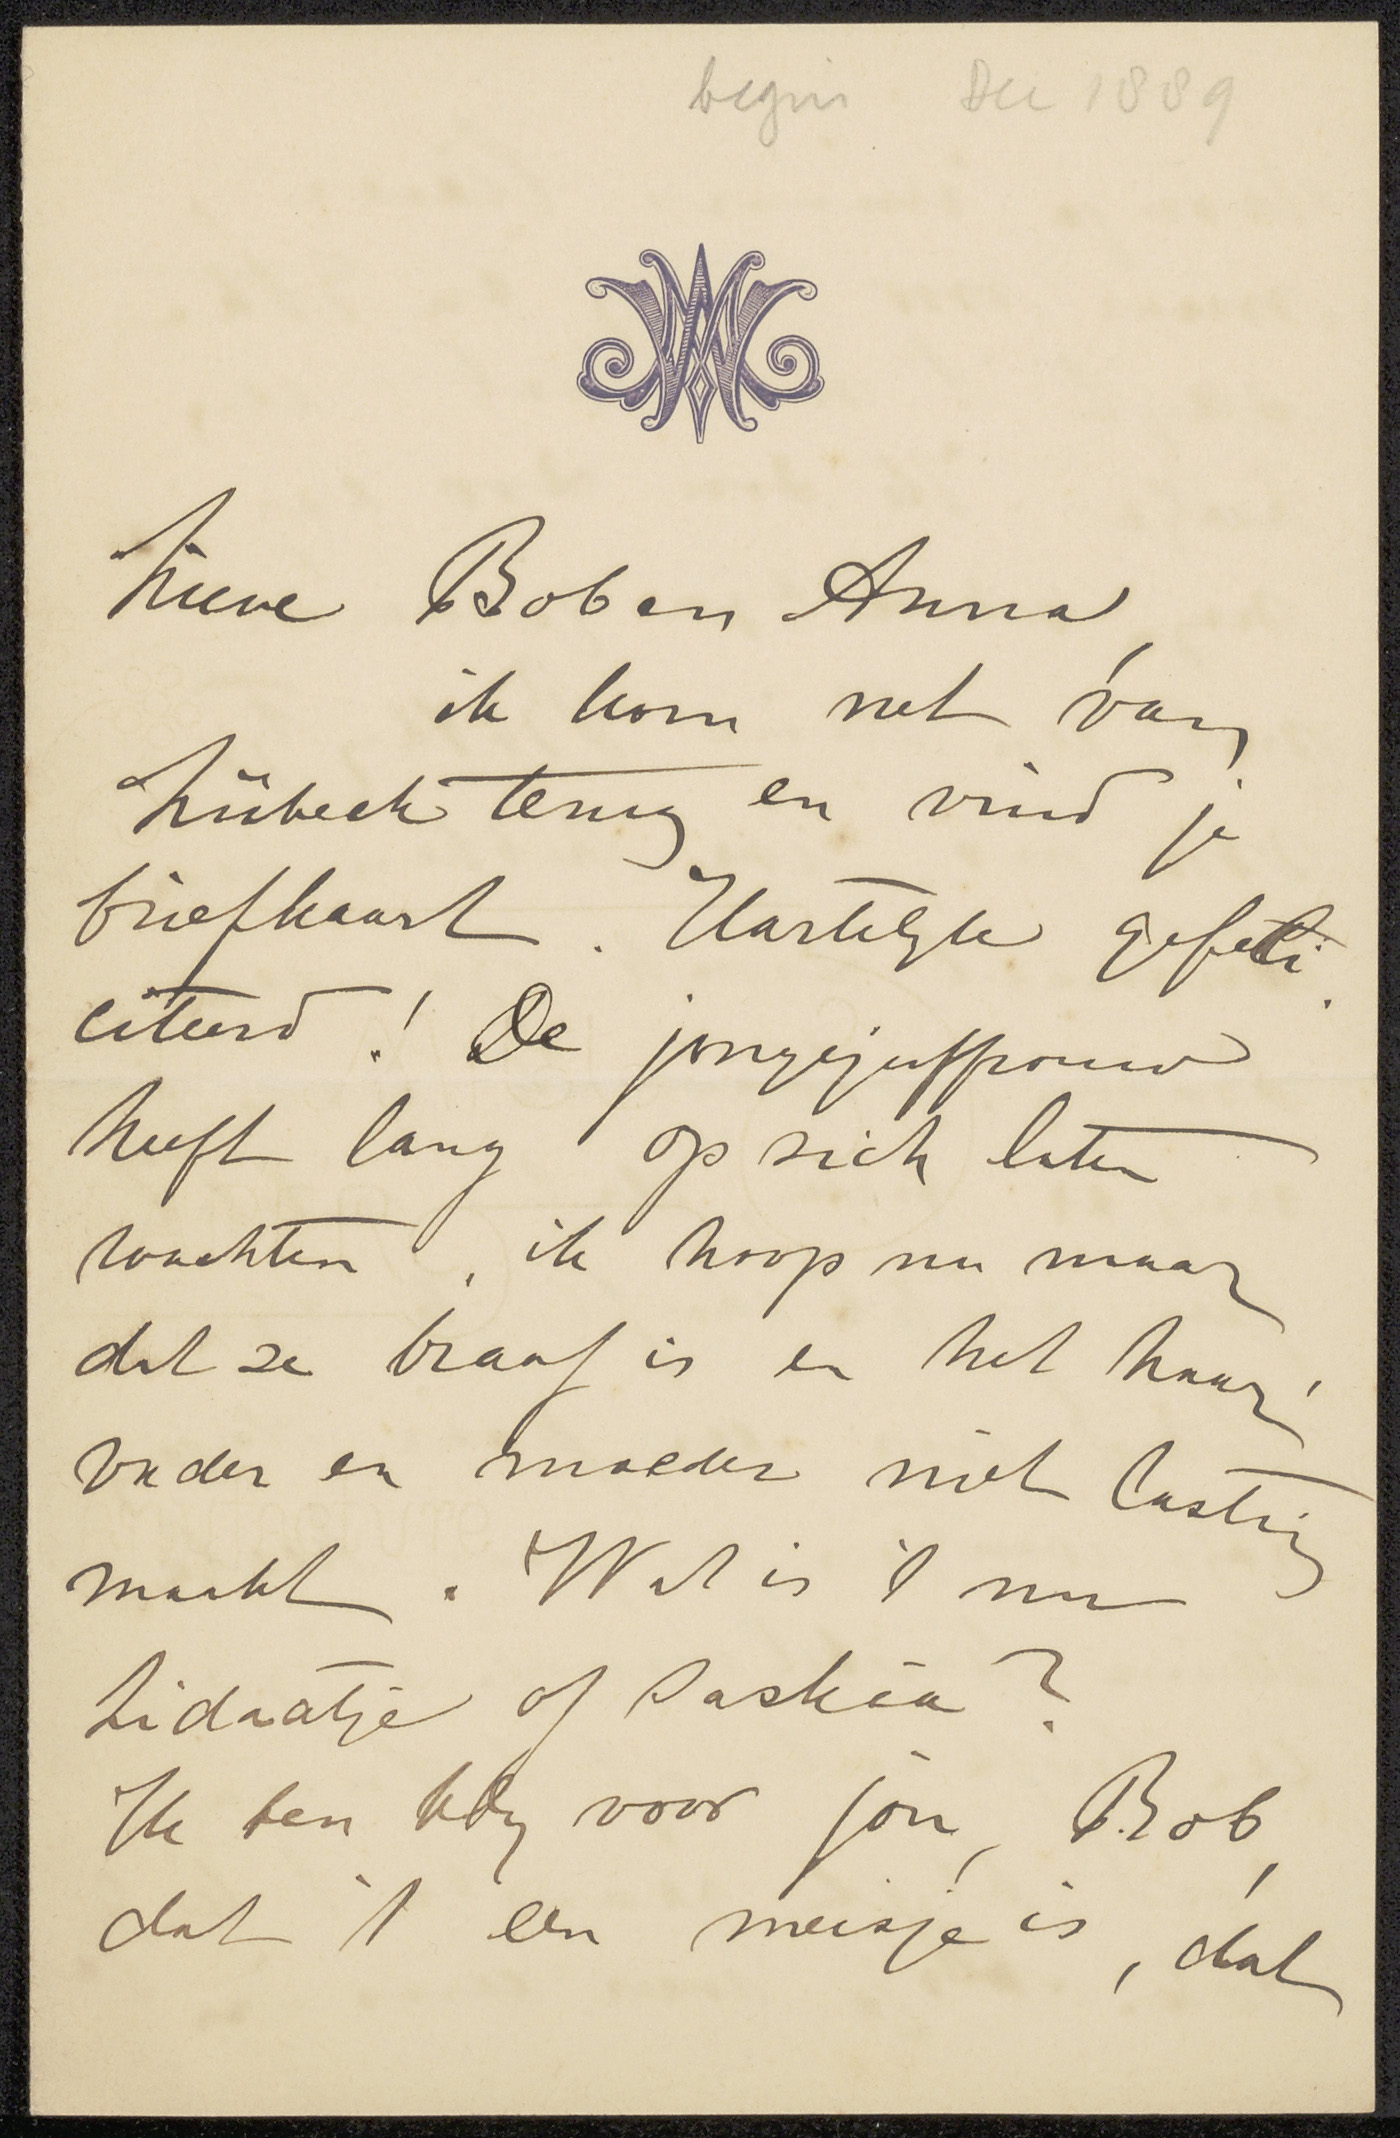 begin Dec 1889
Lieve Bob en Anna,
ik kom net van
Lübeck terug en vind je
briefkaart. Hartelyke gefeli
citeerd! De jongejuffrouw
heeft lang op zich laten
wachten, ik hoop nu maar
dat ze braaf is en het haar
vader en moeder niet lastig
maakt. Wat is 't nu
Lidaatje of Saskia?
Ik ben bly voor jou, Bob,
dat 't een meisje is, dat